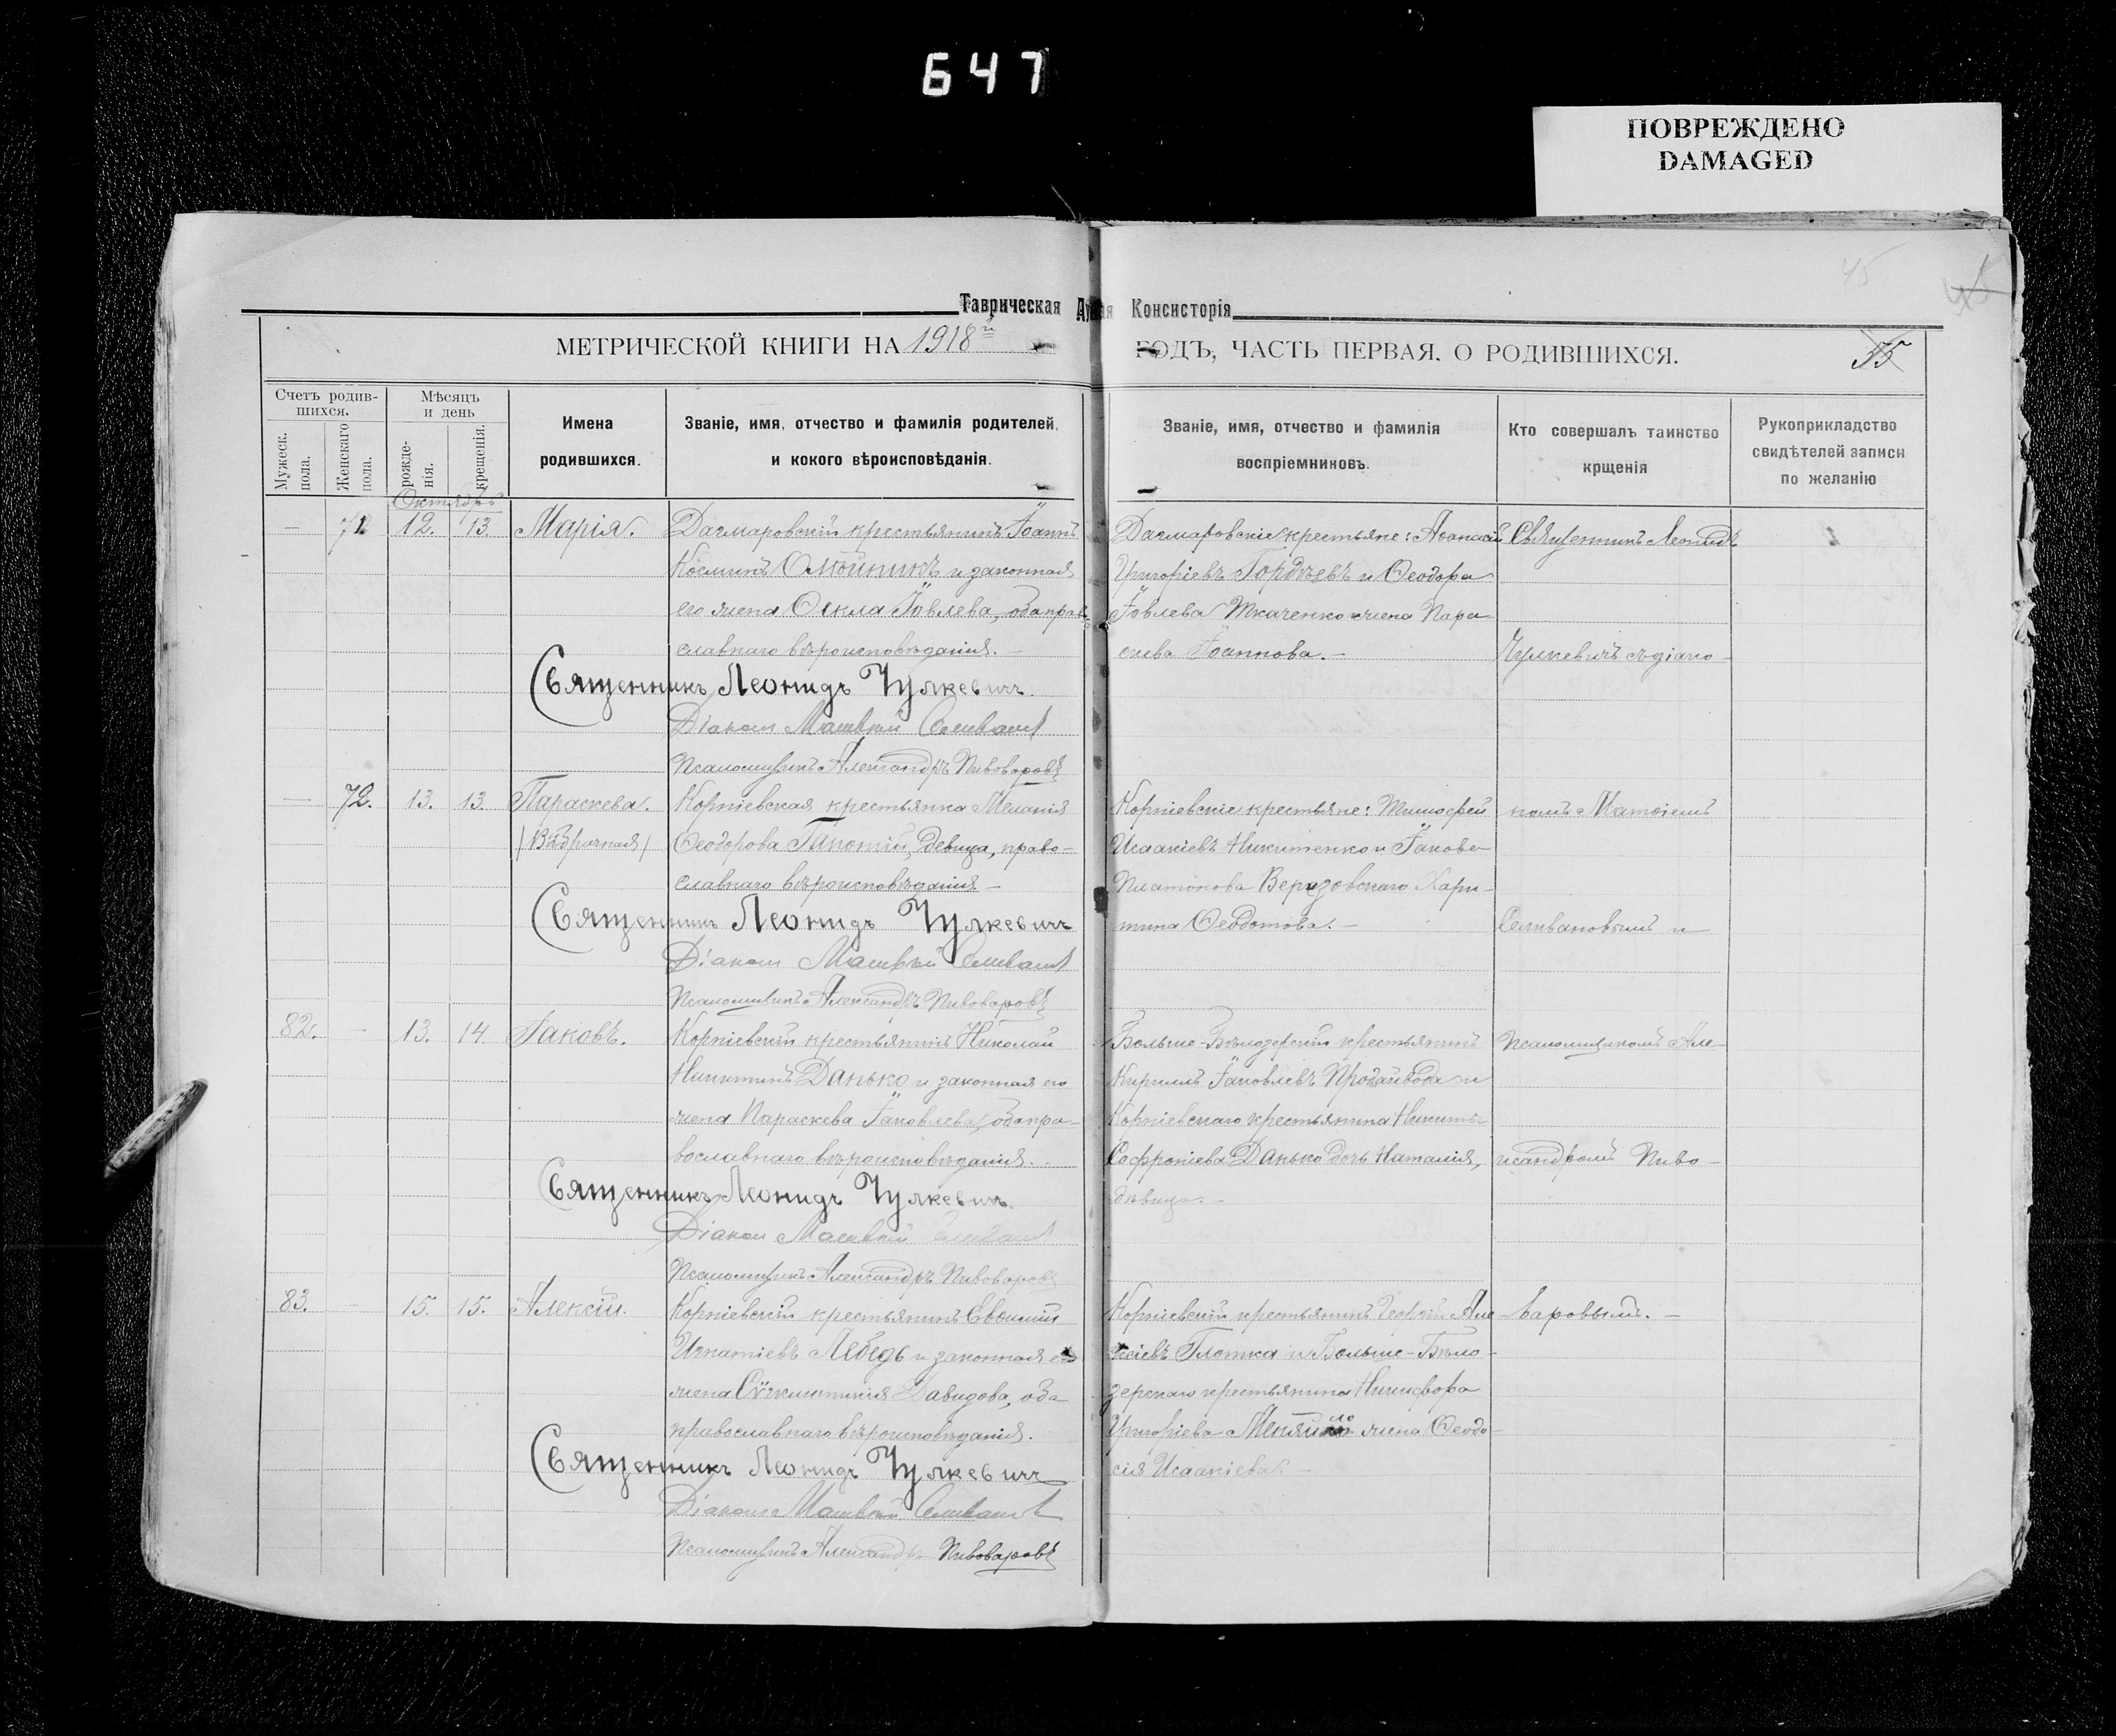 647
ПОВРЕЖДЕНО
DAMAGED
45
Таврическая Дух ая Консисторія
МЕТРИЧЕСКОЙ КНИГИ НА 1918й ГОДЪ, ЧАСТЬ ПЕРВАЯ. О РОДИВШИХСЯ.
55
Счетъ родив-
шихся.
Мужеск.
пола.
Женскаго
пола.
Мѣсяцъ
и день
рожде-
нія.
крещенія.
Имена
родившихся.
Званіе, имя, отчество и фамилія родителей,
и кокого вѣроисповѣданія.
Званіе, имя, отчество и фамилія
воспріемниковъ.
Кто совершалъ таинство
крщенія
Рукоприкладство
свидѣтелей записи
по желанію
Октябрь
— 71. 12. 13. Марія.
Дагмаровскій крестьянинъ Іоаннъ
Косминъ и законная
его жена Ѳекла Іовлева, оба право-
славнаго вѣроисповѣданія. —
Священникъ Леонидъ Чулкевичъ.
Діаконъ Матвѣй Селивановъ
Псаломщикъ Александръ Пивоваровъ
Дагмаровскіе крестьяне: Аѳанасій
Григоріевъ Гордѣевъ и Ѳеодора
Іовлева Ткаченко жена Пара-
скева Іоаннова. —
Священникъ Леонидъ
Чулкевичъ съ діако-
— 72. 13. 13. Параскева.
(Внѣбрачная)
Корніевская крестьянка Меланія
Ѳеодорова девица, право-
славнаго вѣроисповѣданія —
Священникъ Леонидъ Чулкевичъ
Діаконъ Матвѣй Селивановъ
Псаломщикъ Александръ Пивоваровъ
Корніевскіе крестьяне: Тимоѳей
Исаакіевъ Никитенко и Іакова
Платонова Верезовскаго Хари-
тина Ѳеодотова. —
номъ Матѳіемъ
Селивановымъ и
82. — 13. 14. Іаковъ.
Корніевскій крестьянинъ Николай
Никитинъ Данько и законная его
жена Параскева Іаковлева, оба пра-
вославнаго вѣроисповѣданія. —
Священникъ Леонидъ Чулкевичъ.
Діаконъ Матвѣй Селивановъ
Псаломщикъ Александръ Пивоваровъ
Больше-Бѣлозерскій крестьянинъ
Кириллъ Іаковлевъ Продайвода и
Корніевскаго крестьянина Никиты
Софроніева Данько дочь Наталія,
дѣвица. —
Псаломщикомъ Але-
ксандромъ Пиво-
83. — 15. 15. Алексій.
Корніевскій крестьянинъ Евѳимій
Игнатіевъ Лебедь и законная его
жена Давидова, оба
православнаго вѣроисповѣданія.
Священникъ Леонидъ Чулкевичъ
Діаконъ Матвѣй Селивановъ
Псаломщикъ Александръ Пивоваровъ
Корніевскій крестьянинъ Георгій Але
ксіевъ Глотка и Больше-Бѣло-
зерскаго крестьянина Никифора
Григоріева жена Ѳеодо-
сія Исаакіева. —
варовымъ. —